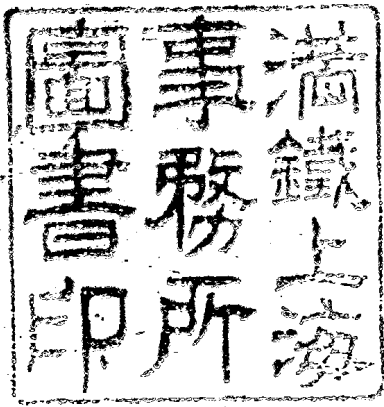 滿鐵上海
事務所
圖書印